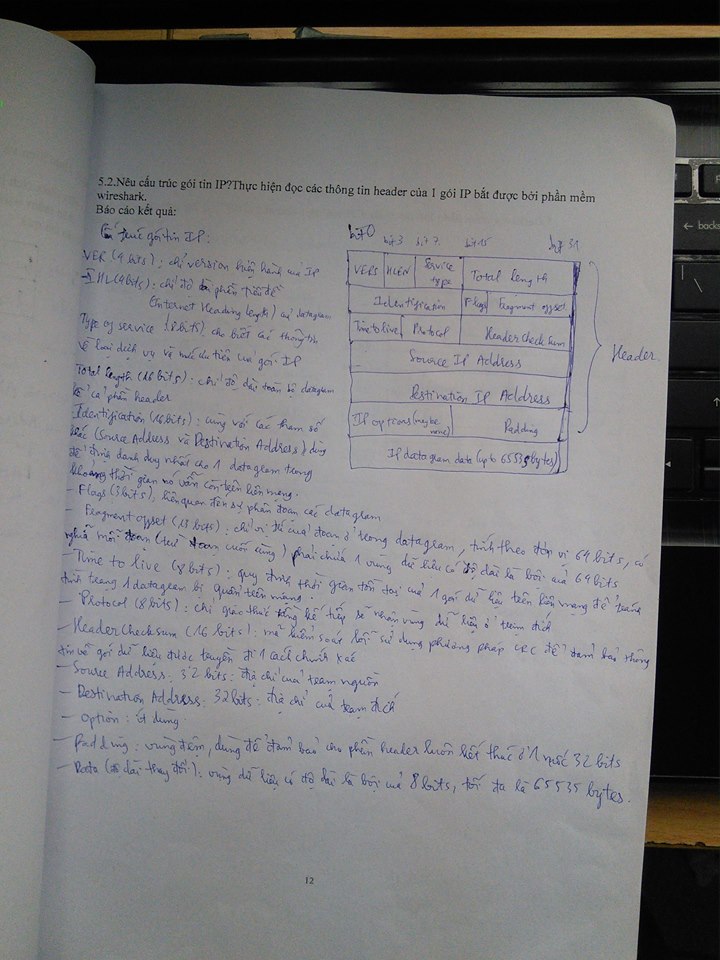 5.2.Nêu cấu trúc gói tin IP?Thực hiện đọc các thông tin header của 1 gói IP bắt được bởi phần mềm
wireshark.
Báo cáo kết quả:
Cấu trúc gói tin IP:
VER (4 bits): chỉ version hiện hành của IP
- IHL (4bits): chỉ độ dài phần tiêu đề
(Internet Heading length) của datagram
Type of service (8 bits): cho biết các thông tin
về loại dịch vụ và mức ưu tiên của gói IP
Total length (16 bits): chỉ độ dài toàn bộ datagram
kể cả phần header
- Identification (16bits): cùng với các tham số
khác (Source Address và Destination Address) dùng
để định danh duy nhất cho 1 datagram trong
khoảng thời gian nó vẫn còn trên liên mạng.
- Flags (3 bits), liên quan đến sự phân đoạn các datagram
- Fragment offset (13 bits): chỉ vị trí của đoạn ở trong datagram, tính theo đơn vị 64 bits, có
nghĩa mỗi đoạn (trừ đoạn cuối cùng) phải chứa 1 vùng dữ liệu có độ dài là bội của 64 bits
- Time to live (8 bits): quy định thời gian tồn tại của 1 gói dữ liệu trên liên mạng để tránh
tình trạng 1 datagram bị quẩn trên mạng.
- Protocol (8 bits): chỉ giao thức tầng kế tiếp sẽ nhận vùng dữ liệu ở trạm đích
- Header Checksum (16 bits): mã kiểm soát lỗi sử dụng phương pháp CRC để đảm bảo thông
tin về gói dữ liệu được truyền đi 1 cách chính xác
- Source Address: 32 bits: địa chỉ của trạm nguồn
- Destination Address: 32 bits: địa chỉ của trạm đích
- Option: ít dùng
- Padding: vùng đệm, dùng để đảm bảo cho phần header luôn kết thúc ở 1 mốc 32 bits
- Data (độ dài thay đổi): vùng dữ liệu có độ dài là bội của 8 bits, tối đa là 65535 bytes.
bit 0 bit 3 bit 7 bit 15 bit 31
VERS HLEN Service type Total length
Identification Flags Fragment offset
Time to live Protocol Header check sum
Source IP Address
Destination IP Address
IP options (maybe none) Padding
IP datagram data (up to 65535 bytes)
Header
12
← backs
\